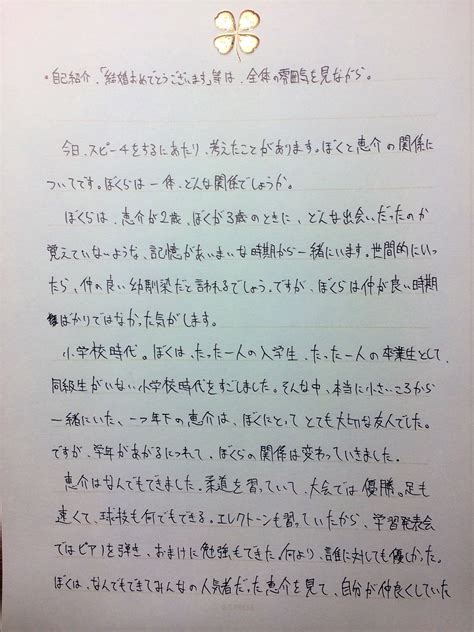 ・自己紹介、「結婚おめでとうございます」等は、全体の雰囲気を見ながら。
今日、スピーチをするにあたり、考えたことがあります。ぼくと恵介の関係に
ついてです。ぼくらは一体、どんな関係でしょうか。
ぼくらは、恵介が2歳、ぼくが3歳のときに、どんな出会いだったのか
覚えていないような、記憶があいまいな時期から一緒にいます。世間的にいっ
たら、仲の良い幼馴染だと言われるでしょう。ですが、ぼくらは仲が良い時期
ばかりではなかった気がします。
小学校時代。ぼくは、たった一人の入学生、たった一人の卒業生として、
同級生がいない小学校時代をすごしました。そんな中、本当に小さいころから
一緒にいた、一つ年下の恵介は、ぼくにとってとても大切な友人でした。
ですが、学年があがるにつれて、ぼくらの関係は変わっていきました。
恵介はなんでもできました。柔道を習っていて、大会では優勝。足も
速くて、球技も何でもできる。エレクトーンも習っていたから、学習発表会
ではピアノを弾き、おまけに勉強もできた。何より、誰に対しても優しかった。
ぼくは、なんでもできてみんなの人気者だった恵介を見て、自分が仲良くしていた